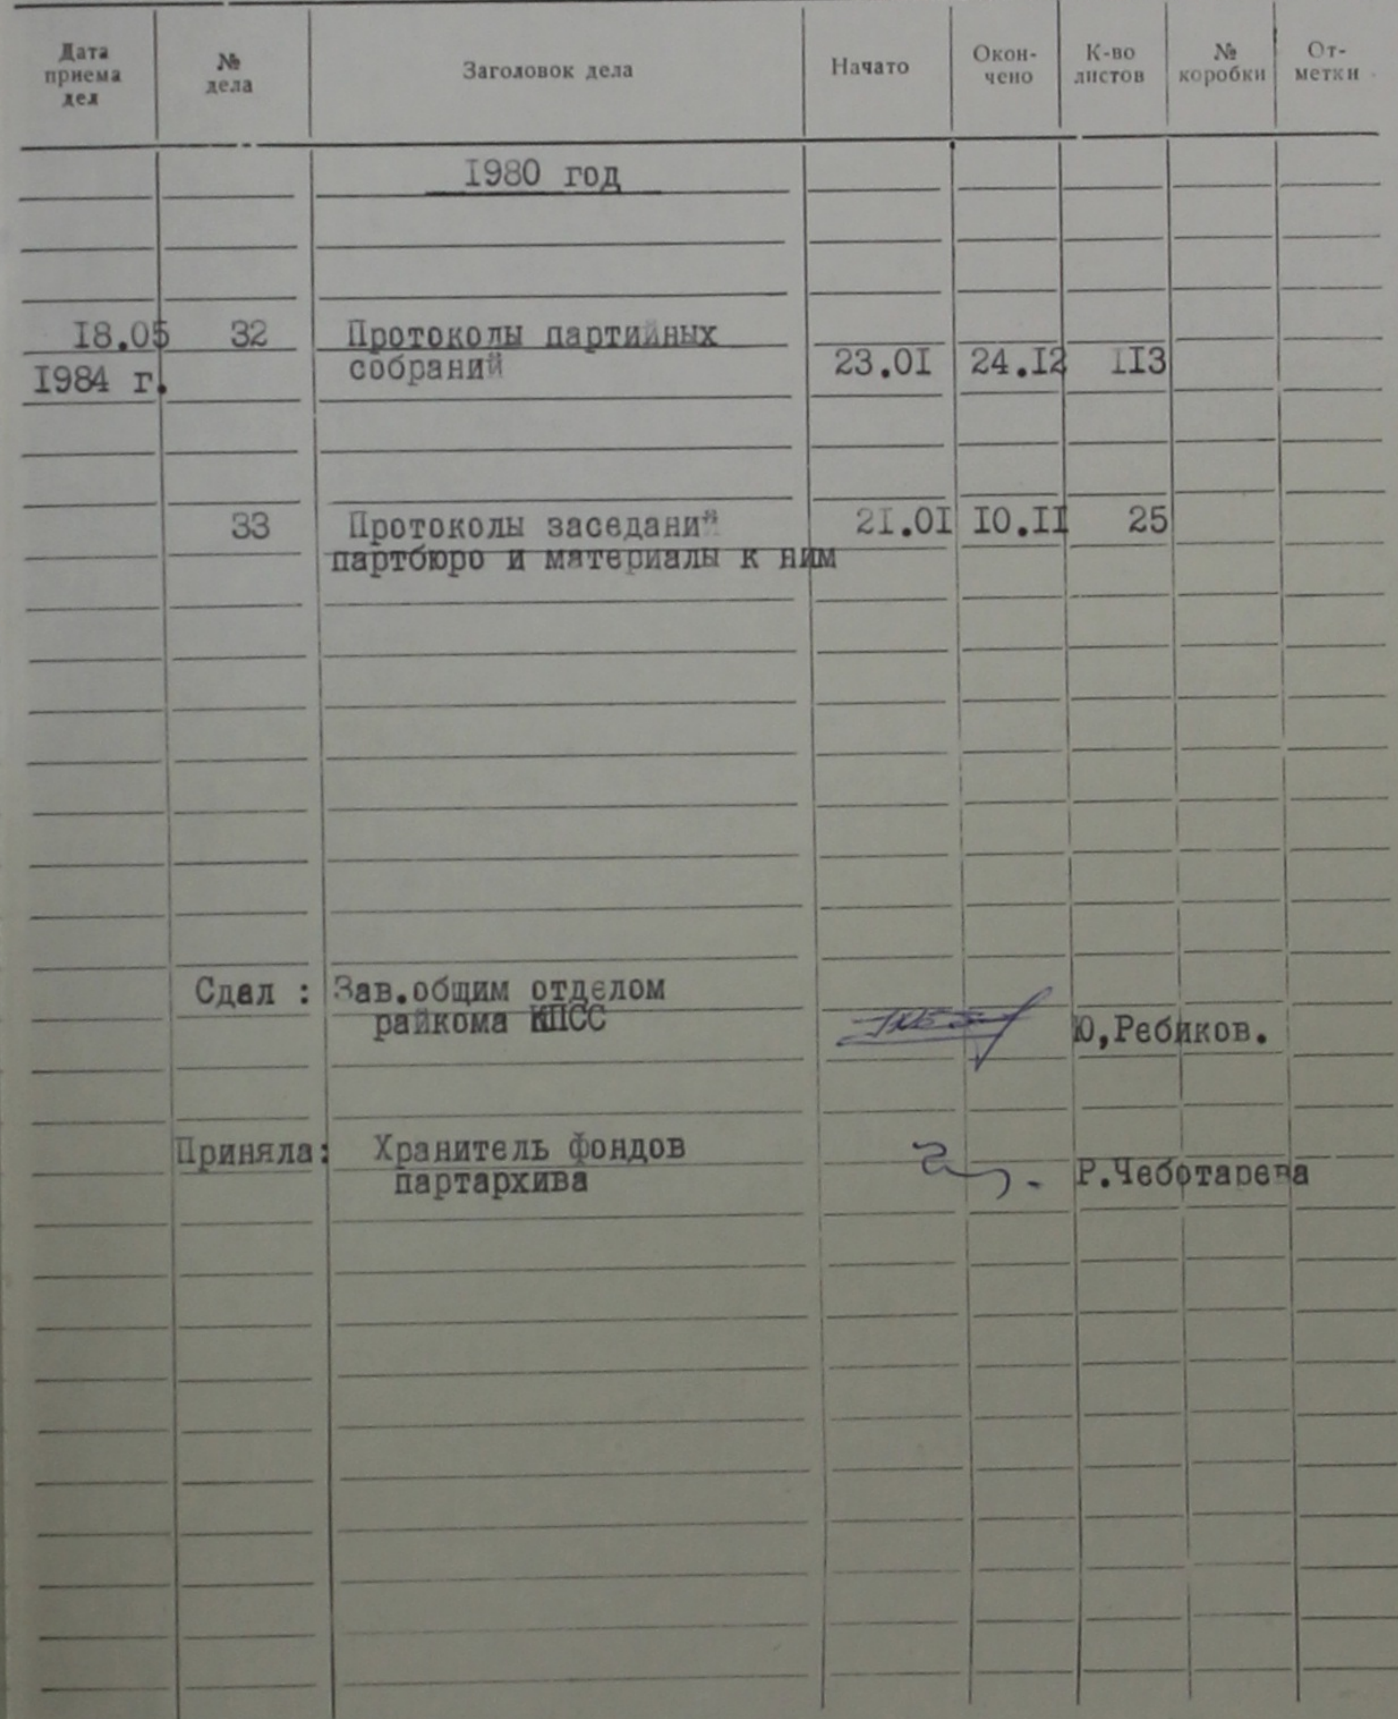 Дата приема дел № дела Заголовок дела Начато Окон- чено К-во листов № коробки От- метки
1980 год
18.05 32 Протоколы партийных
1984 г. собраний 23.01 24.12 113
33 Протоколы заседаний 21.01 10.11 25
партбюро и материалы к ним
Сдал : Зав.общим отделом
райкома КПСС Ю,Ребиков.
Приняла: Хранитель фондов
партархива Р.Чеботарева